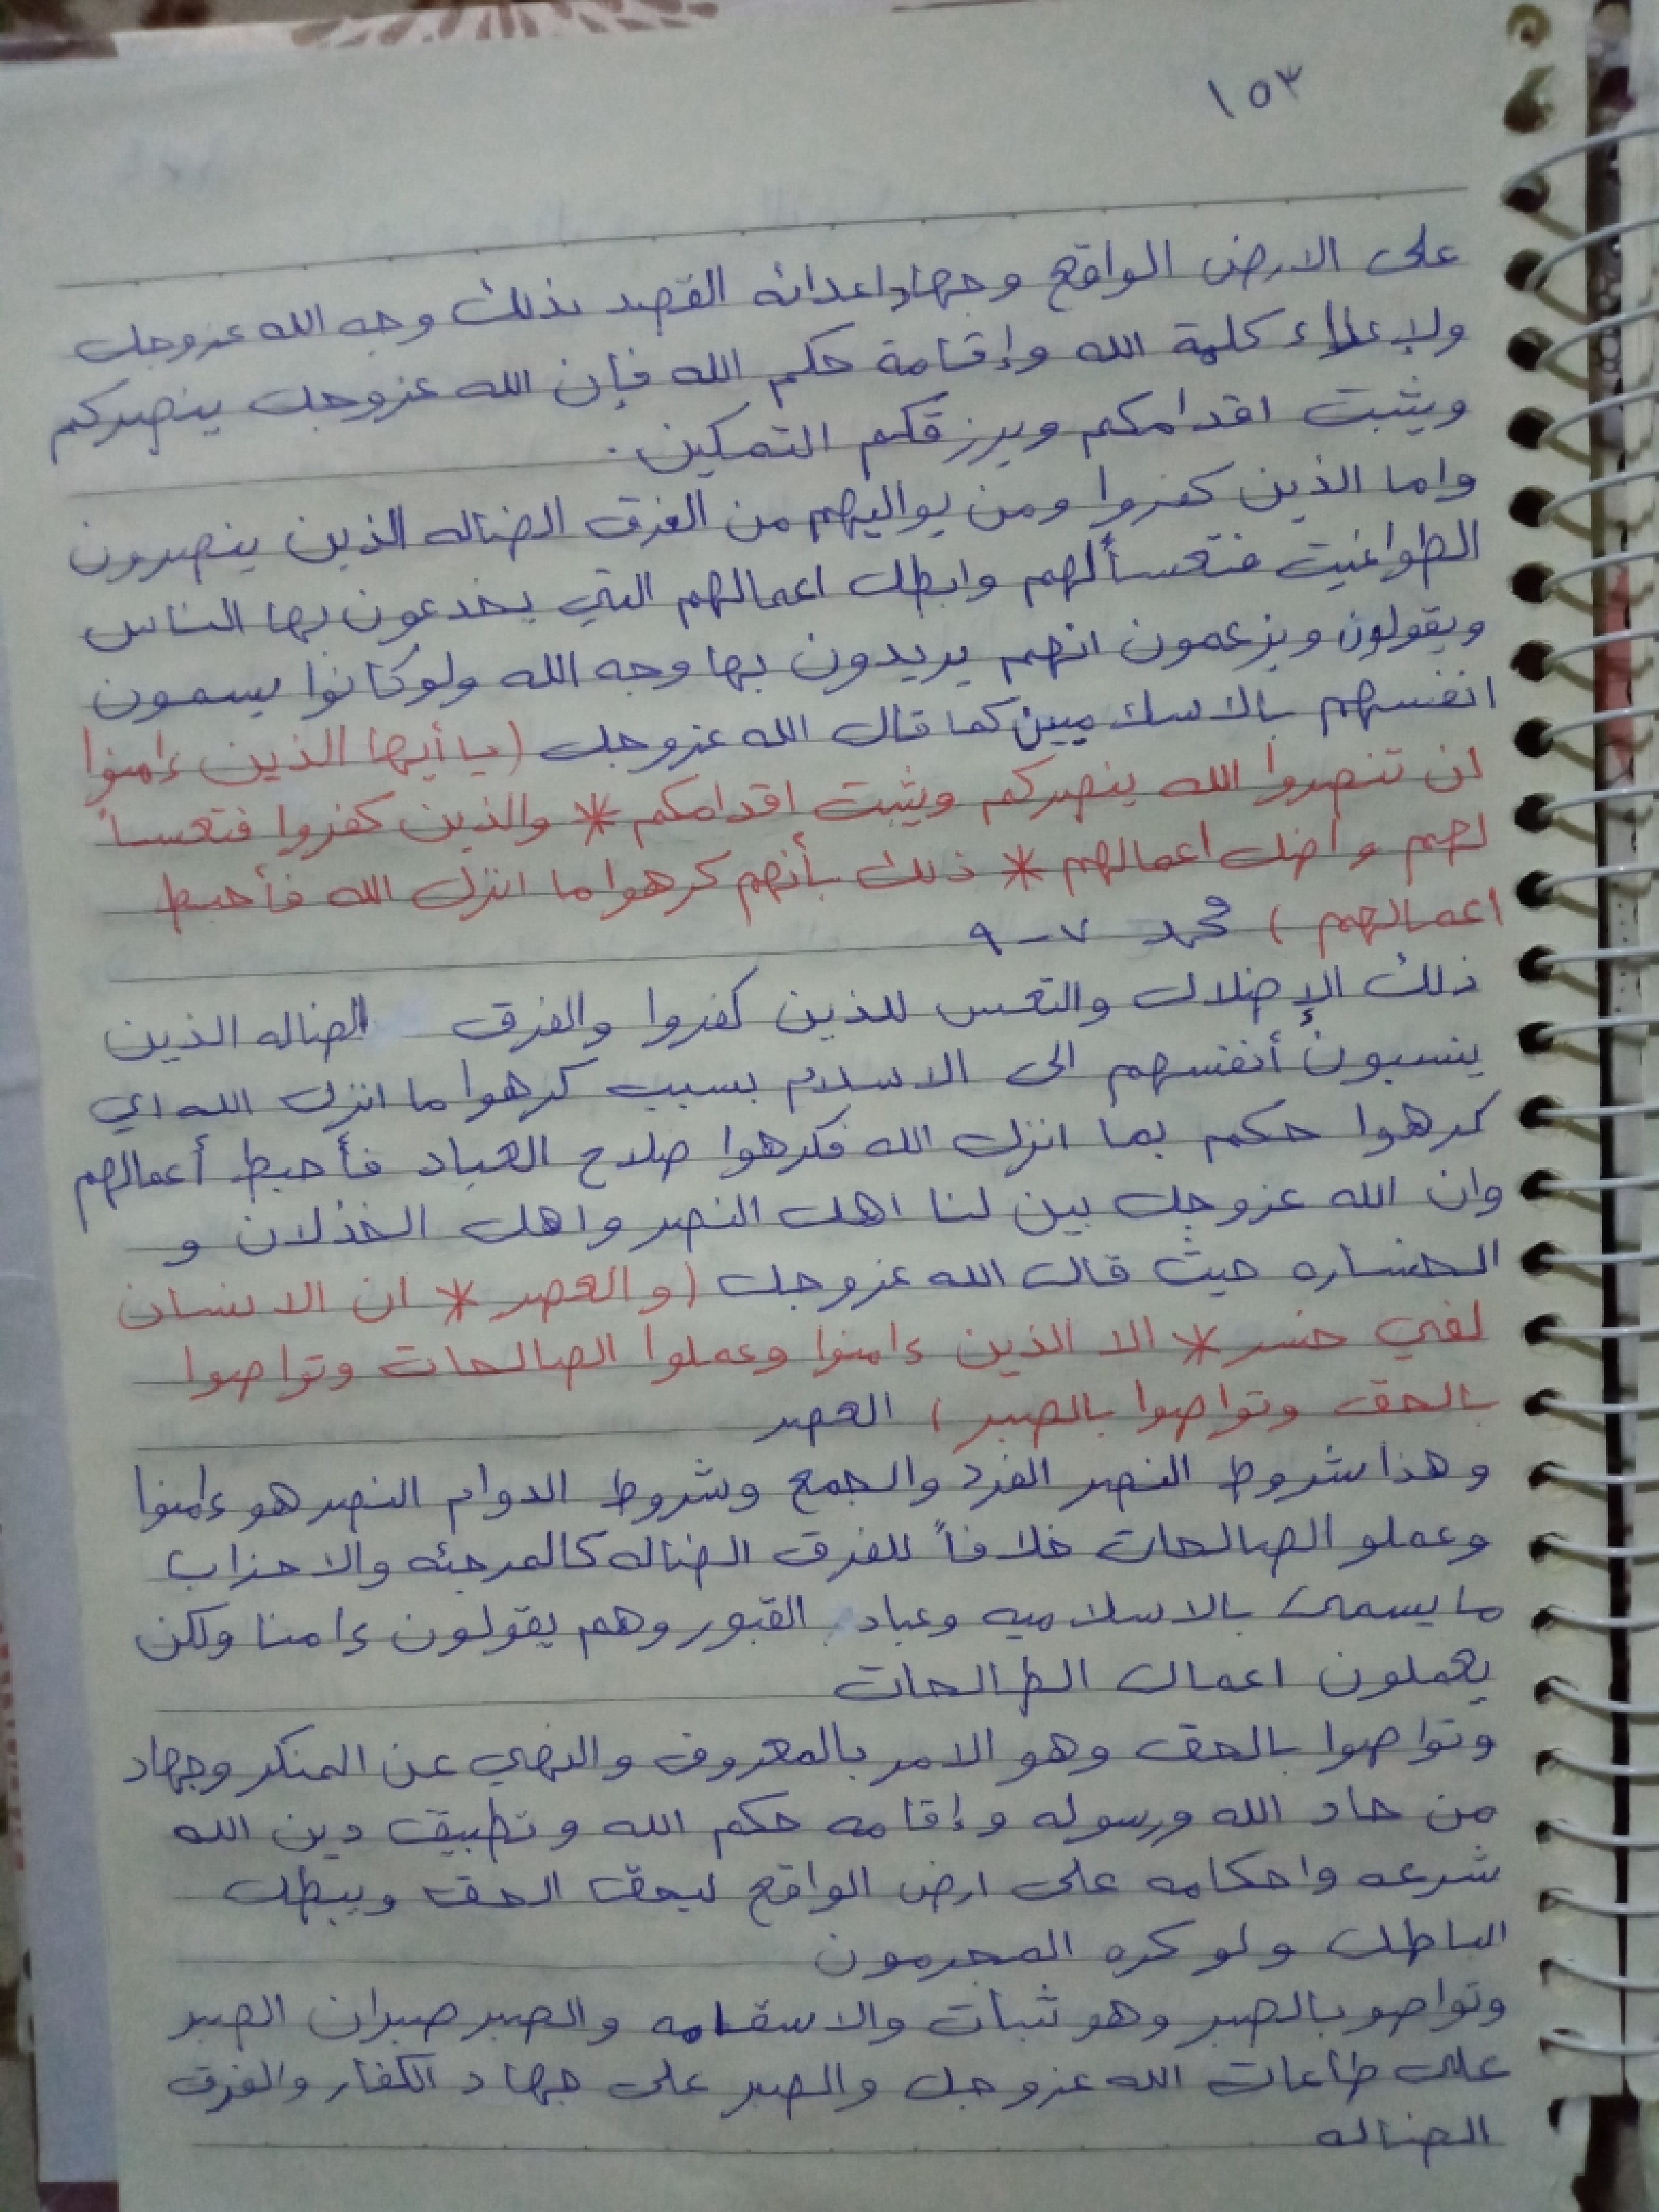 ١٥٣
على الارض الواقع وجهاد اعدائه القصد بذلك وجه الله عزوجل
ولإعلاء كلمة الله وإقامة حكم الله فإن الله عزوجل ينصركم
ويثبت اقدامكم ويرزقكم التمكين.
واما الذين كفروا ومن يواليهم من الفرق الضاله الذين ينصرون
الطواغيت فتعسأ لهم وابطل اعمالهم التي يخدعون بها الناس
ويقولون ويزعمون انهم يريدون بها وجه الله ولو كانوا يسمون
انفسهم بالاسلاميين كما قال الله عزوجل (يا أيها الذين ءامنوا
ان تنصروا الله ينصركم ويثبت اقدامكم * والذين كفروا فتعسا
لهم واضل اعمالهم * ذلك بأنهم كرهوا ما انزل الله فأحبط
اعمالهم) محمد ٧-٩
ذلك الإضلال والتعس للذين كفروا والفرق الضاله الذين
ينسبون أنفسهم الى الاسلام بسبب كرهوا ما انزل الله اي
كرهوا حكم بما انزل الله فكرهوا صلاح العباد فأحبط أعمالهم
وان الله عزوجل بين لنا اهل النصر واهل الخذلان و
الخساره حيث قال الله عزوجل (والعصر * ان الانسان
لفي خسر * الا الذين ءامنوا وعملوا الصالحات وتواصوا
بالحق وتواصوا بالصبر) العصر
وهذا شروط النصر الفرد والجمع وشروط الدوام النصر هو ءامنوا
وعملو الصالحات خلافاً للفرق الضاله كالمرجئه والاحزاب
ما يسمى بالاسلاميه وعباد القبور وهم يقولون ءامنا ولكن
يعملون اعمال الطالحات
وتواصوا بالحق وهو الامر بالمعروف والنهي عن المنكر وجهاد
من حاد الله ورسوله وإقامه حكم الله وتطبيق دين الله
شرعه واحكامه على ارض الواقع ليحق الحق ويبطل
الباطل ولو كره المجرمون
وتواصو بالصبر وهو ثبات والاسقامه والصبر صبران الصبر
على طاعات الله عزوجل والصبر على جهاد الكفار والفرق
الضاله